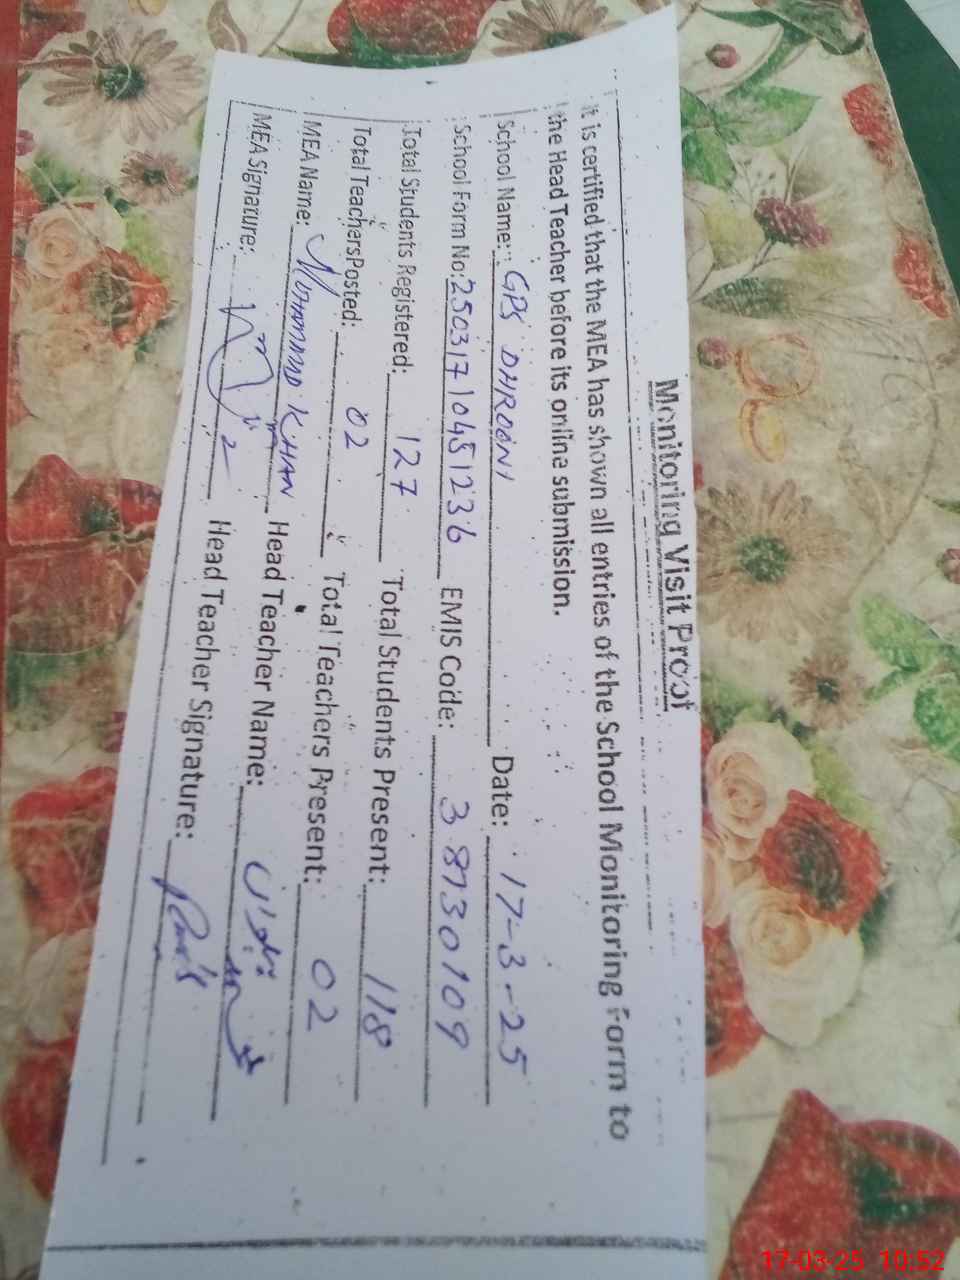 Monitoring Visit Proof
It is certified that the MEA has shown all entries of the School Monitoring Form to
the Head Teacher before its online submission.
School Name: GPS DHROONI Date: 17-3-25
School Form No: 25031710451236 EMIS Code: 38730109
Total Students Registered: 127 Total Students Present: 118
Total Teachers Posted: 02 Total Teachers Present: 02
MEA Name: MUHAMMAD KHAN Head Teacher Name:
MEA Signature: Head Teacher Signature:
17-03-25 10:52